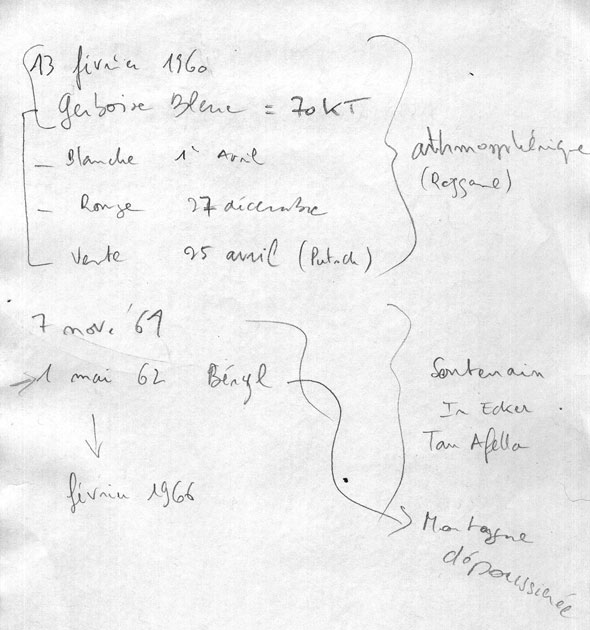 13 février 1960
Gerboise Bleue = 70 KT
Blanche 1er Avril
Rouge 27 décembre
Verte 25 avril (Putsch)
athmosphérique
(Reggane)
7 nove. '61
→ 1 mai 62 Béryl
février 1966
Souterrain
In Ecker
Tan Afella
Montagne
dépoussiérée